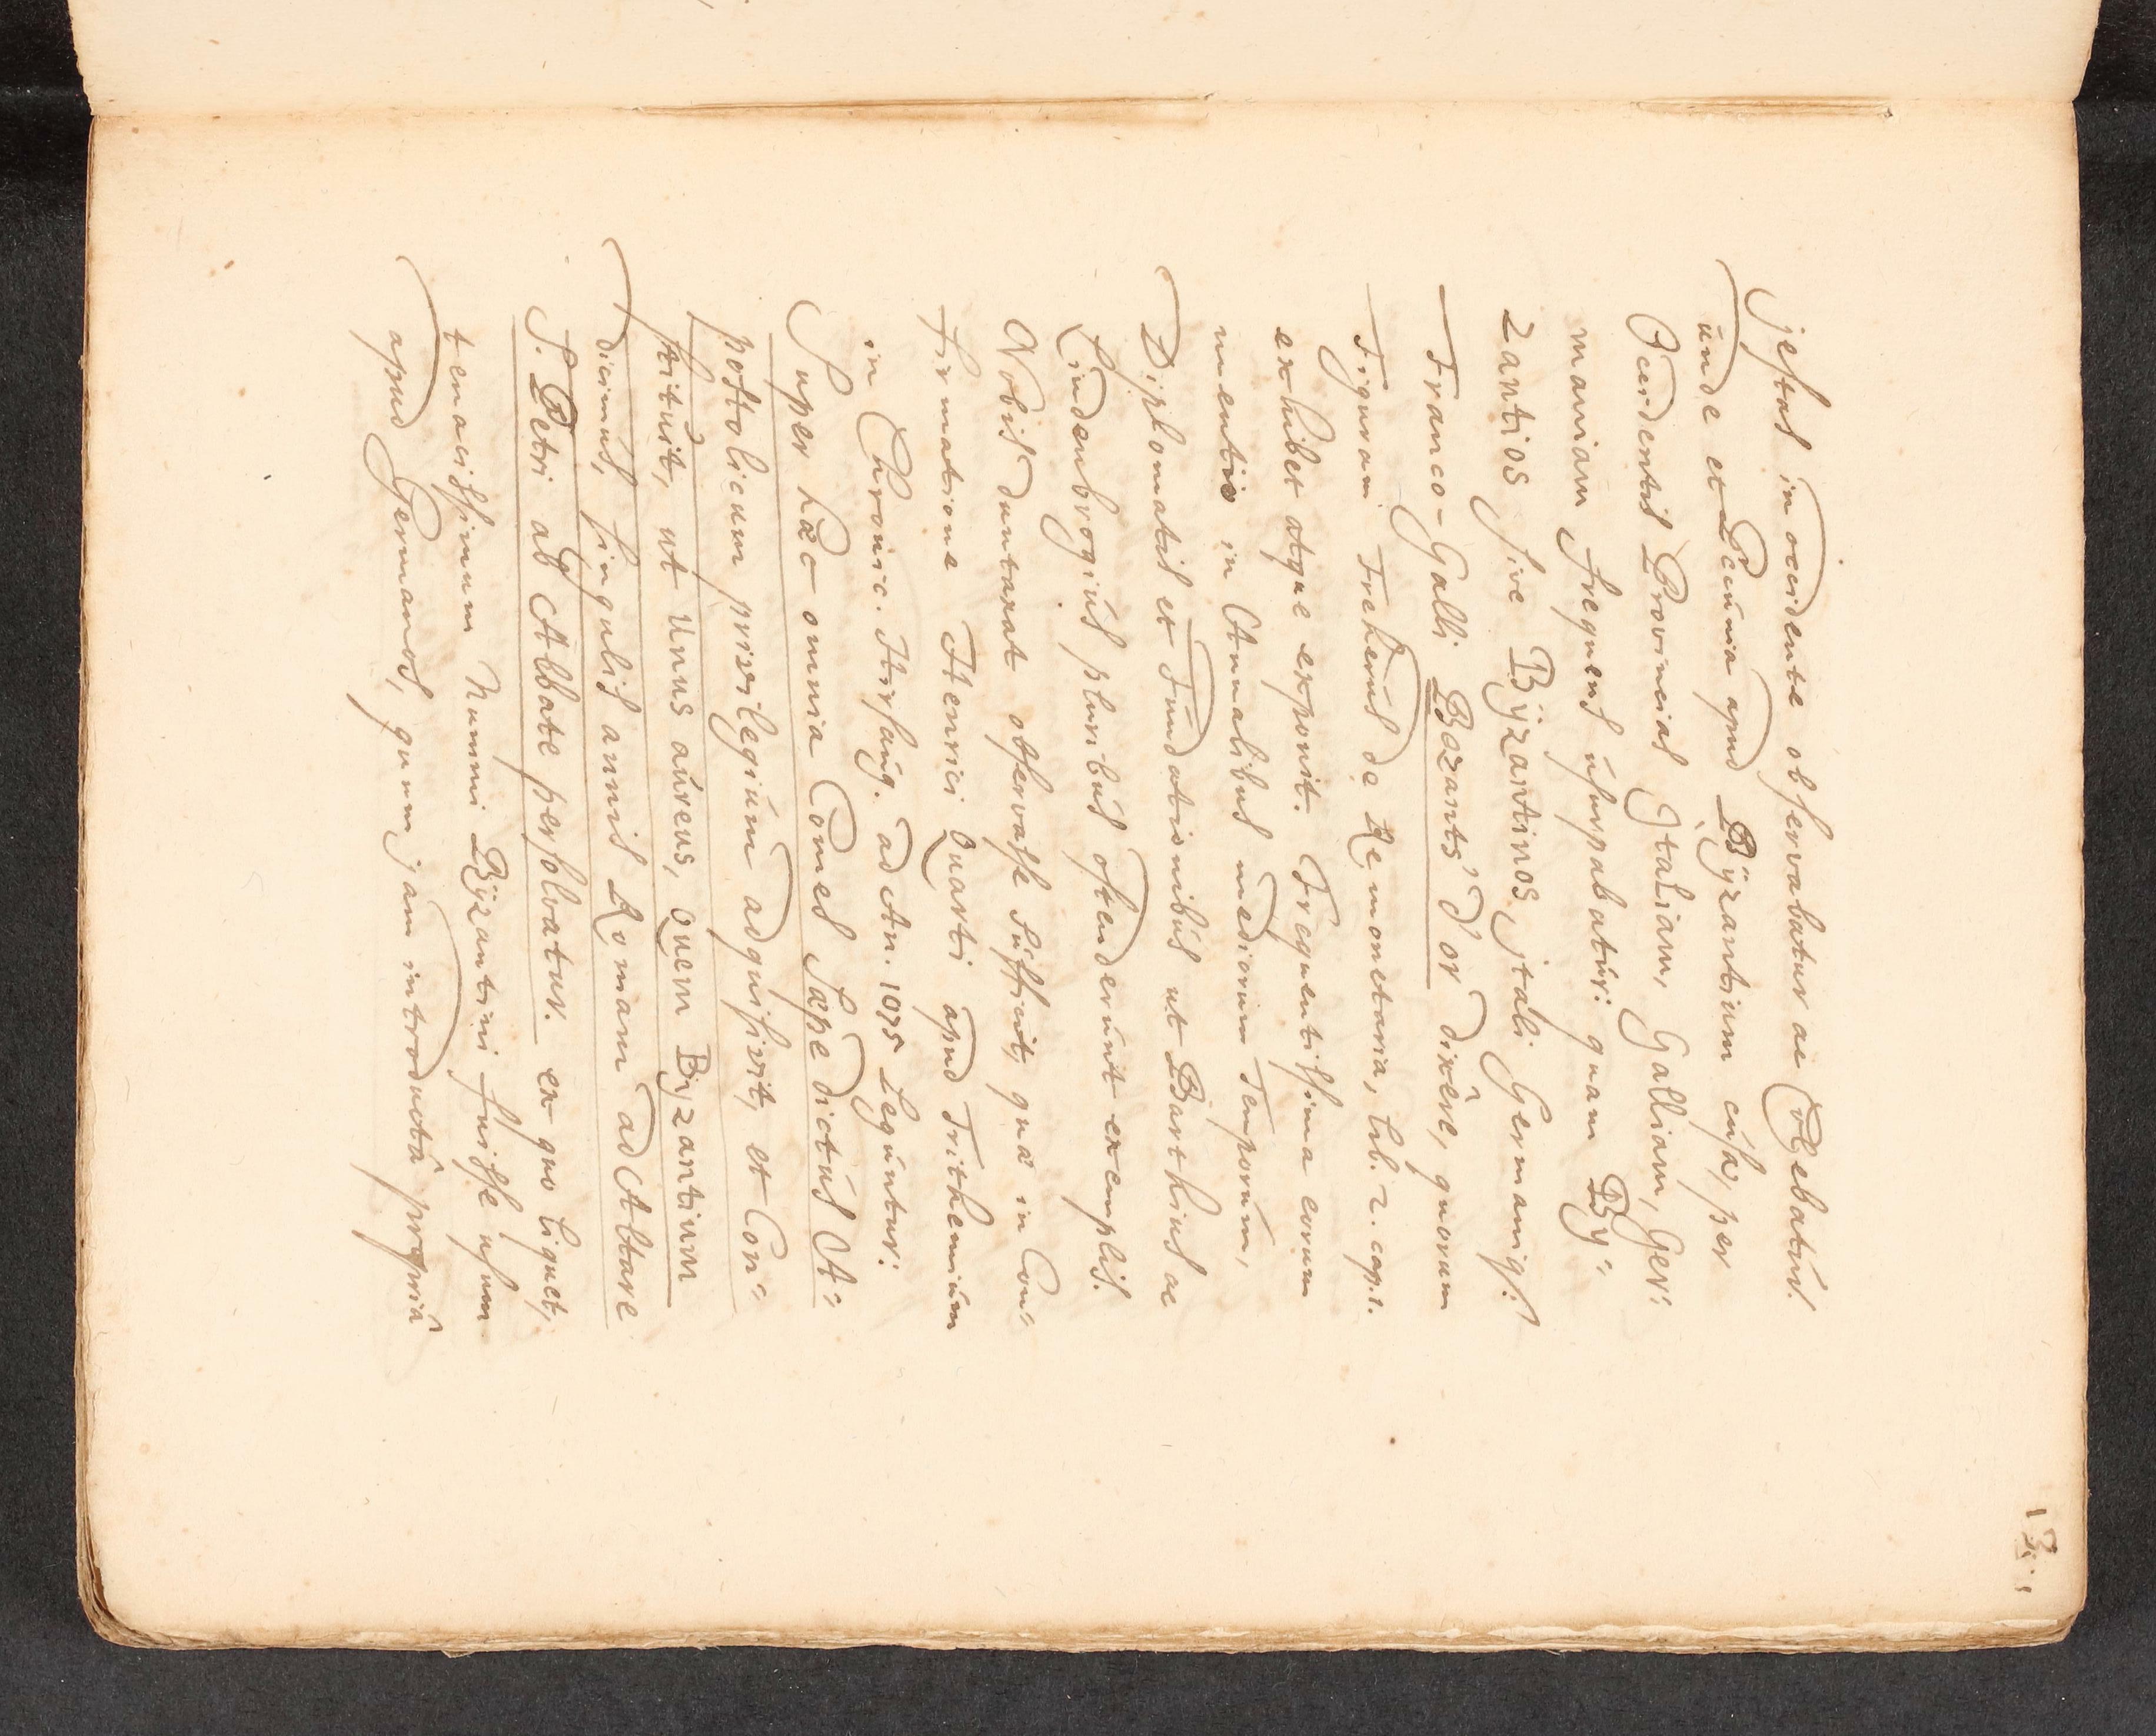 13.
jestas in occidente observabatur ac Colebatur.
unde et Pecunia apud Bÿzantium cusa, per
Occidentis Provincias Jtaliam, Galliam, Ger:
maniam frequens usurpabatur: quam By=
zantios sive Bÿzantinos, jtali Germaniq;
Franco-Galli Bezants d'or dixêre, quorum
Figuram Freherus de Re monetaria, lib. 2. cap. 1.
exhibet atque exponit. Frequentissima eorum
mentio in Annalibus mediorum Temporum,
Diplomatis et Fundationibus ut Barthius ac
Lindenbrogius pluribus ostenderunt exemplis.
Nobis duntaxat observasse sufficit, quæ in Con=
firmatione Henrici Quarti apud Trithemium
in Chronic. Hirsaug. ad An. 1075 Leguntur:
Super hæc omnia Comes Sæpe dictus A=
postolicum privilegium adquisivit, et Con=
stituit, ut Unus aureus, quem Byzantium
dicimus, singulis annis Romam ad Altare
S. Petri ab Abbate persolvatur. ex quo liquet,
tenacissimum Nummi Bÿzantini fuisse usum
apud Germanos, quum jam introducta propria